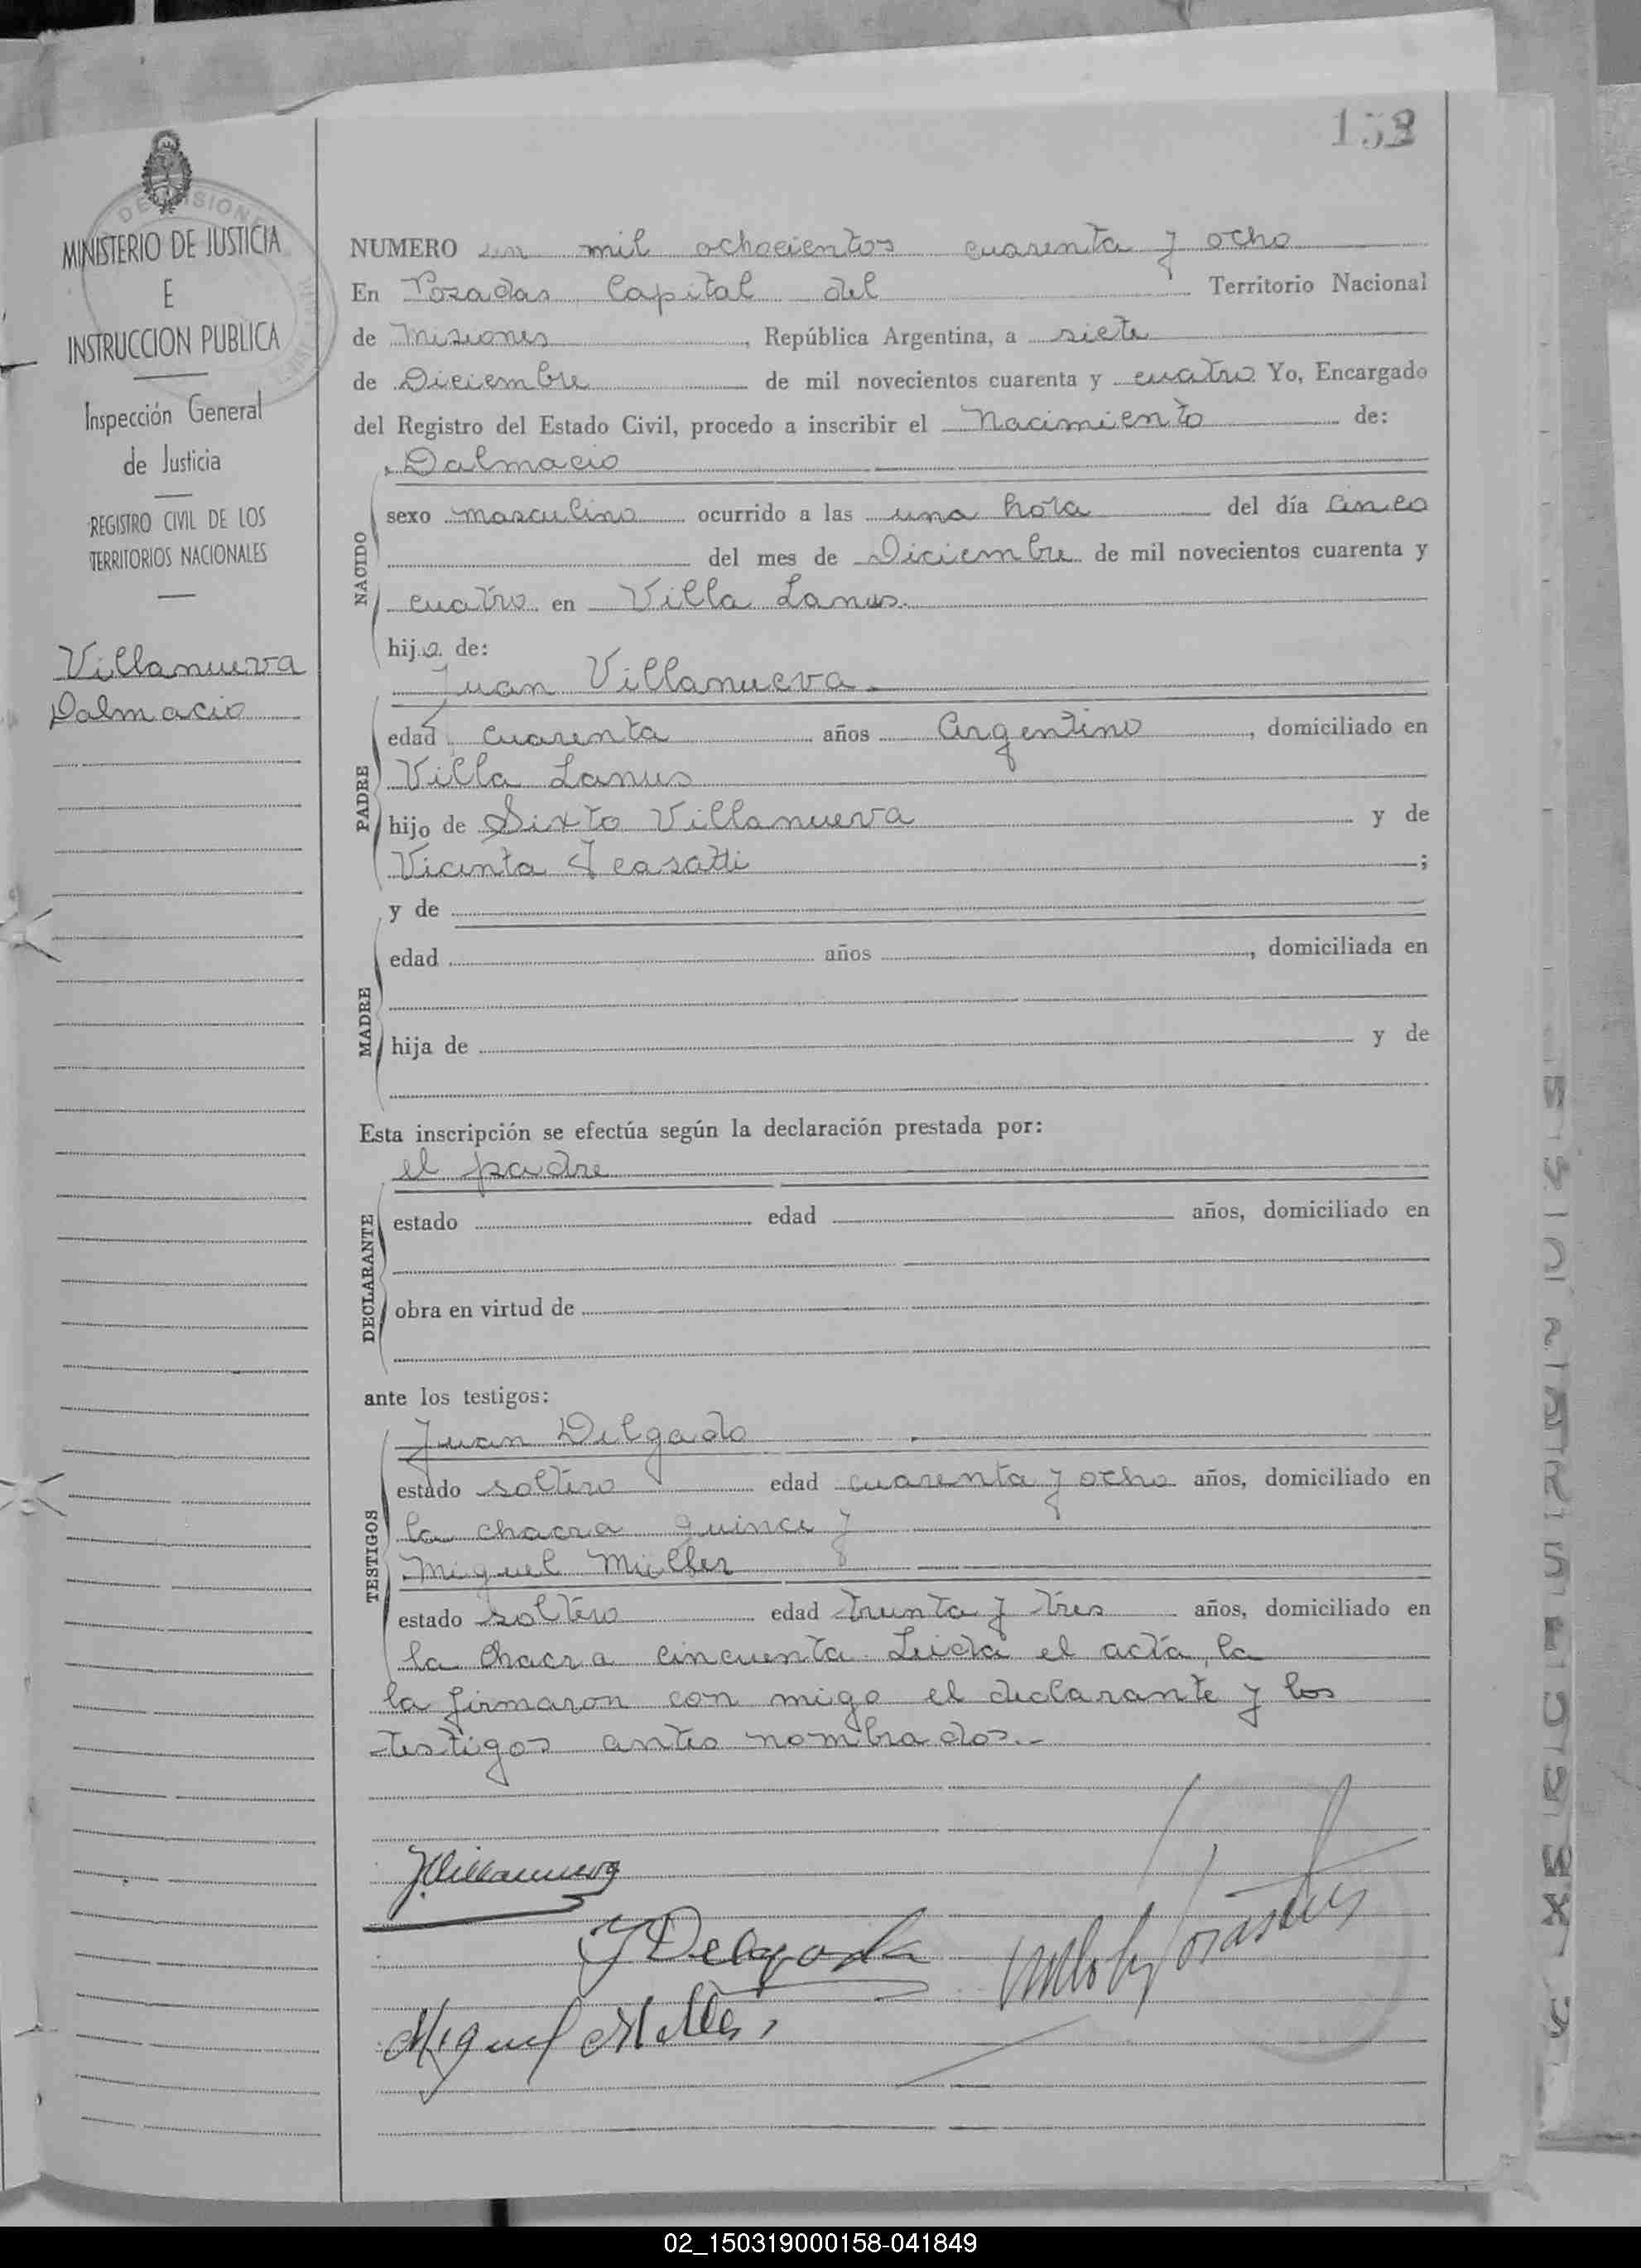 MINISTERIO DE JUSTICIA
E
INSTRUCCION PUBLICA
Inspección General
de Justicia
REGISTRO CIVIL DE LOS
TERRITORIOS NACIONALES
Villanueva
Dalmacio
NUMERO un mil ochocientos cuarenta y ocho
En Posadas Capital del Territorio Nacional
de Misiones, República Argentina, a siete
de Diciembre de mil novecientos cuarenta y cuatro Yo, Encargado
del Registro del Estado Civil, procedo a inscribir el Nacimiento de:
Dalmacio
NACIDO
sexo masculino ocurrido a las una hora del día cinco
del mes de Diciembre de mil novecientos cuarenta y
cuatro en Villa Lanus.
hijo de:
Juan Villanueva
PADRE
edad cuarenta años Argentino, domiciliado en
Villa Lanus
hijo de Sixto Villanueva y de
Vicenta ;
y de
MADRE
edad años , domiciliada en
hija de y de
Esta inscripción se efectúa según la declaración prestada por:
el padre
DECLARANTE
estado edad años, domiciliado en
obra en virtud de
ante los testigos:
TESTIGOS
Juan Delgado
estado soltero edad cuarenta y ocho años, domiciliado en
la chacra quince y
Miguel Müller
estado soltero edad treinta y tres años, domiciliado en
la chacra cincuenta. Leida el acta, la
la firmaron con migo el declarante y los
testigos antes nombrados.-
JVillanueva
J Delgado
Miguel
02_150319000158-041849